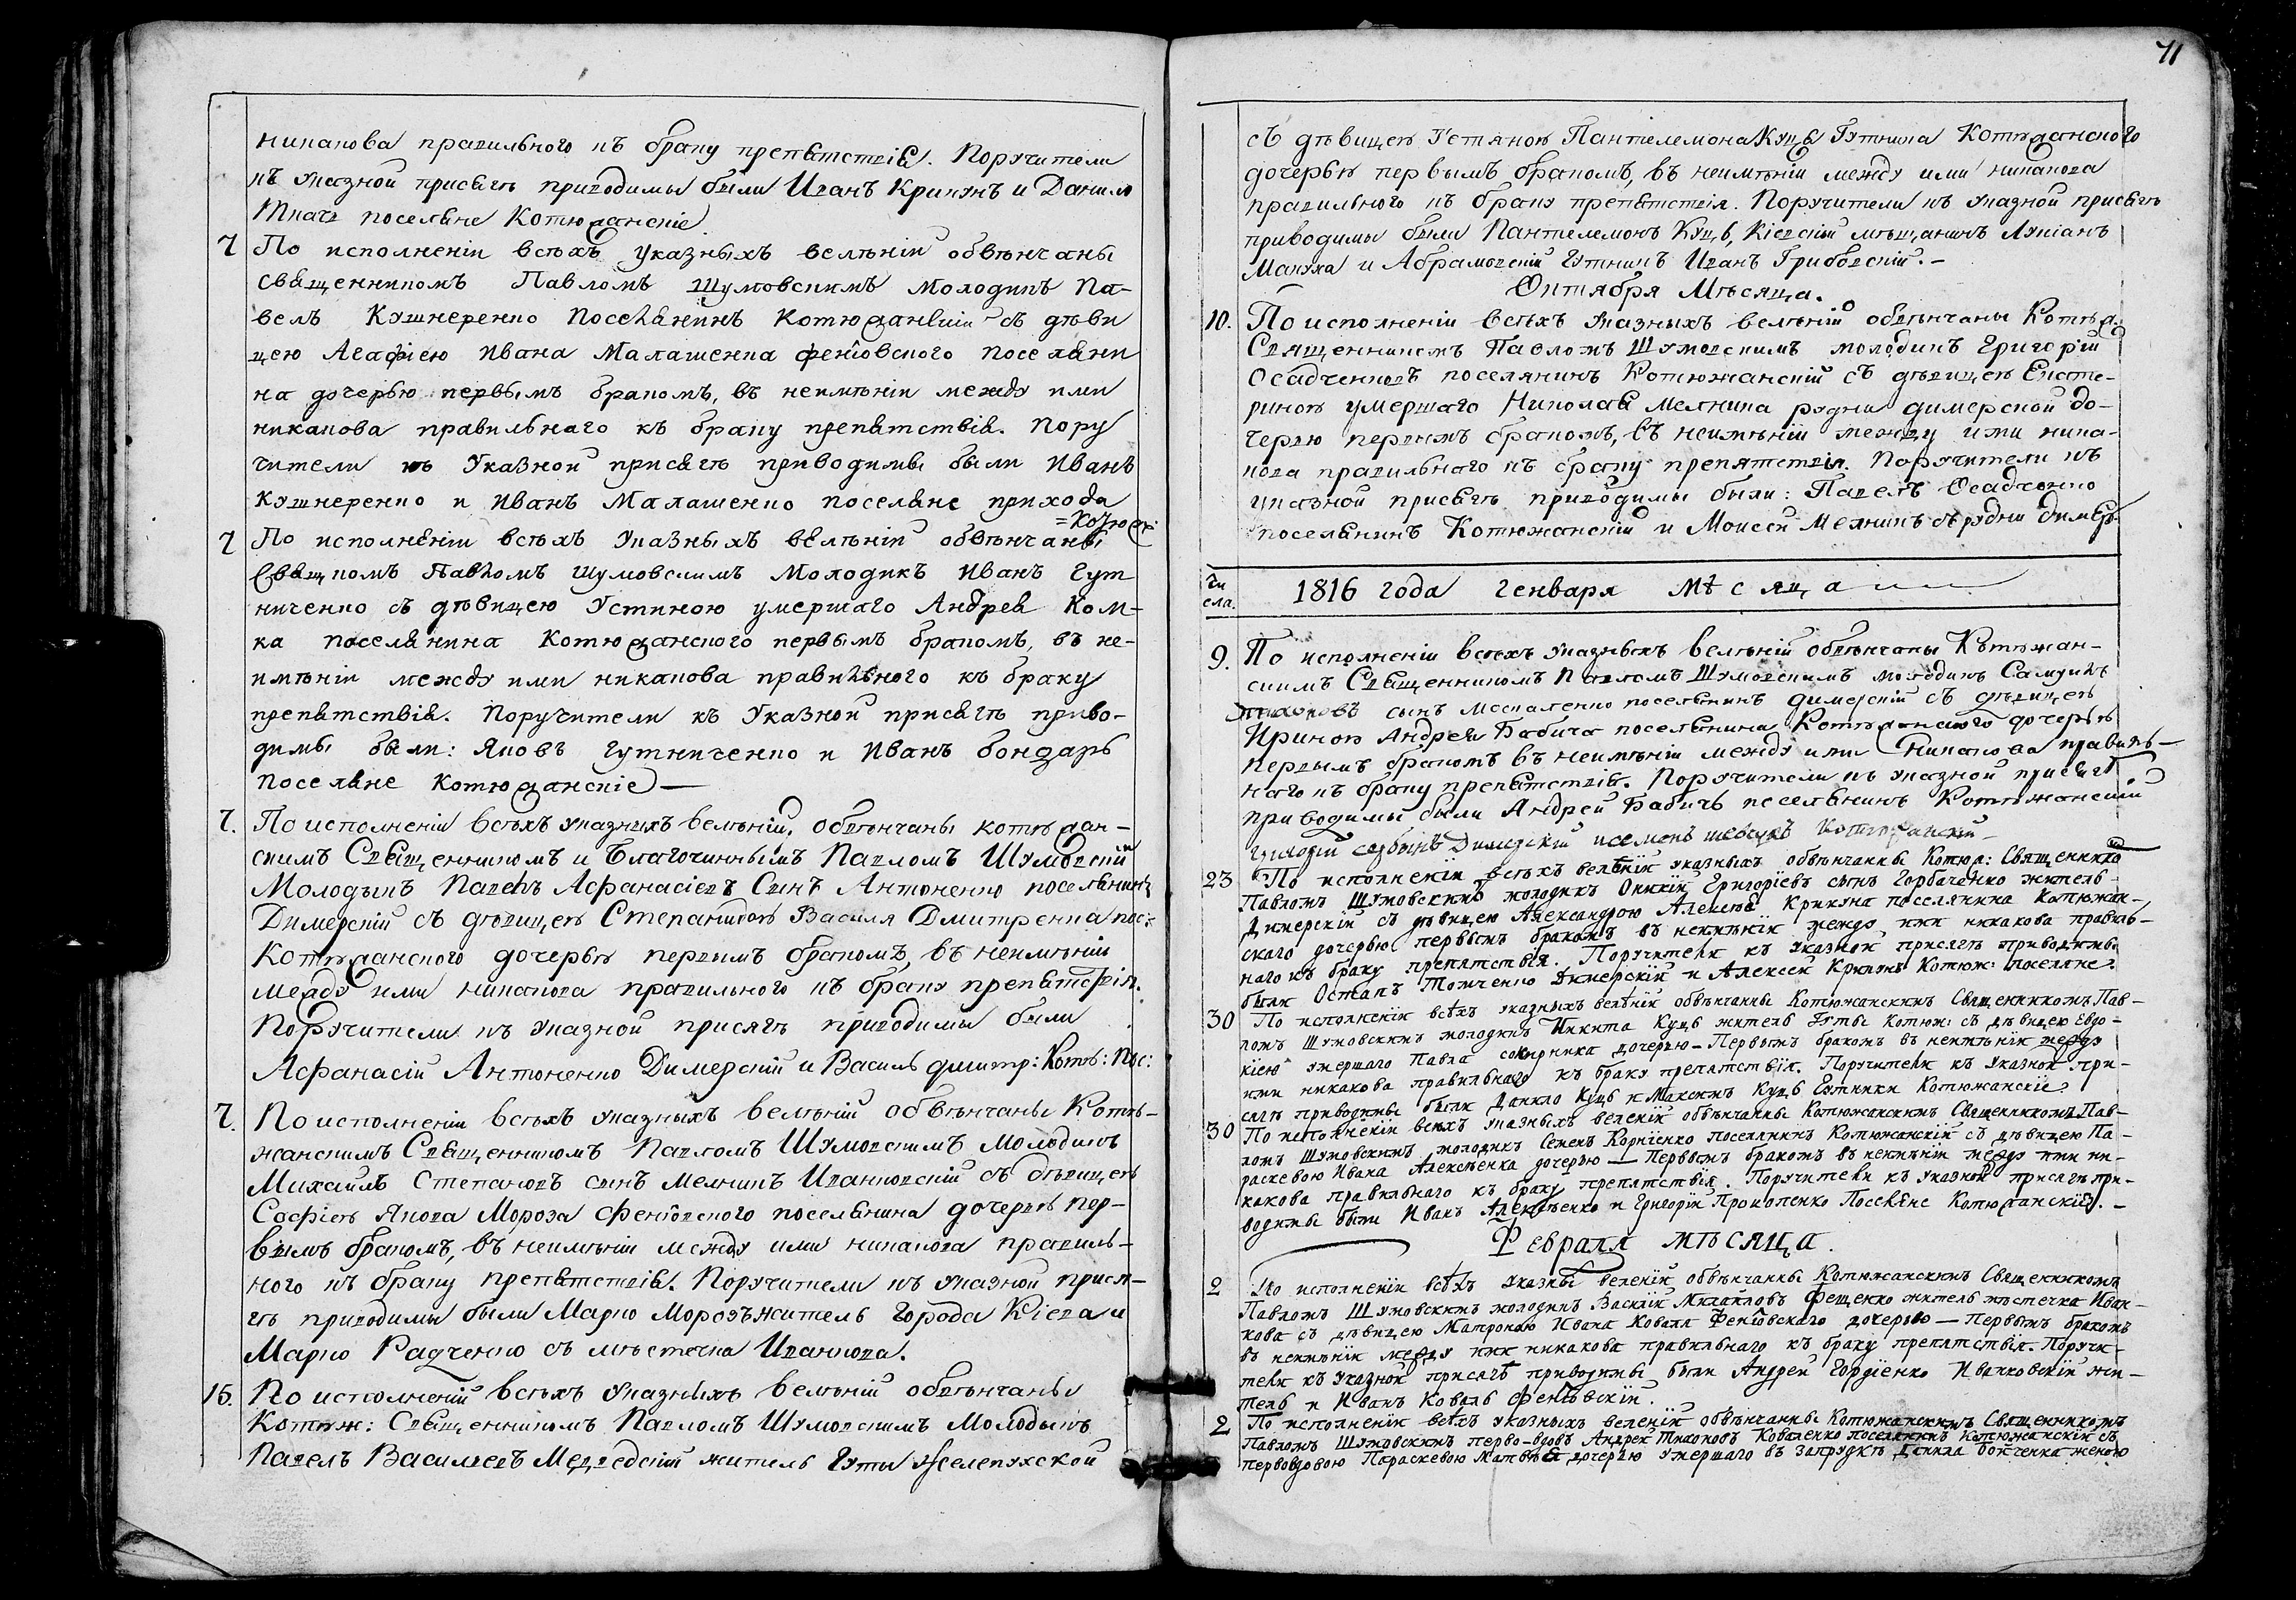 никакова правильного къ браку препятствія. Поручители
къ указной присягѣ приводимы были Иванъ Крикунъ и Данило
Ткачъ поселяне Котюжанскіе
7 По исполненіи всѣхъ указныхъ велѣній обвѣнчаны
священникомъ Павломъ Шумовскимъ молодикъ Па-
велъ Кушнеренко поселянинъ Котюжанскій съ дѣви
цею Агафіею Ивана Малашенка феніовского поселяни
на дочерью первымъ бракомъ, въ неимѣніи между ими
никакова правильнаго къ браку препятствія. Пору
чители къ указной присягѣ приводимы были Иванъ
Кушнеренко и Иванъ Малашенко поселяне прихода
=Котюж:
7 По исполненіи всѣхъ указныхъ велѣній обвѣнчаны
Свящ никомъ Павломъ Шумовскимъ Молодикъ Иванъ Гут
ниченко съ дѣвицею Устиною умершаго Андрея Ком-
ка поселянина Котюжанского первымъ бракомъ, въ не-
имѣніи между ими никакова правильного къ браку
препятствія. Поручители къ указной присягѣ приво-
димы были: Яковъ Гутниченко и Иванъ бондарь
поселяне Котюжанскіе —
7. По исполненіи всѣхъ указныхъ велѣній, обвѣнчаны котюжан-
скимъ Священникомъ и Благочиннымъ Павломъ Шумовскій
Молодыкъ Павелъ Афанасіевъ Сынъ Антоненко поселянинъ
Димерскій съ дѣвицею Степанидою Василя Дмитренка пос:
Котюжанского дочерью первымъ бракомъ, въ неимѣніи
между ими никакова правильного къ браку препятствія.
Поручители къ указной присягѣ приводимы были
Афанасій Антоненко Димерскій и Василь дмитр: Котю: Пос:
7. По исполненіи всѣхъ указныхъ велѣній обвѣнчаны Котю-
жанскимъ Священникомъ Павломъ Шумовскимъ Молодикъ
Михаилъ Степановъ сынъ Мелникъ Иванковскій съ дѣвицею
Софіею Якова Мороза Феніовского поселянина дочерью пер-
вымъ бракомъ, въ неимѣніи между ими никакова правиль-
ного къ браку препятствія. Поручители къ указной прися-
гѣ приводимы были Марко Морозъ житель города Кіева и
Марко Радченко съ мѣстечка Иванкова.
15. По исполненіи всѣхъ указныхъ велѣній обвѣнчаны
Котюж: Священникомъ Павломъ Шумовскимъ Молодыкъ
Павелъ Василіевъ Медведскій житель Гуты
71
съ дѣвицею Устяною Пантелемона Куца Гутника Котюжанского
дочерью первымъ бракомъ, въ неимѣніи между ими никакова
правильного къ браку препятствія. Поручители къ указной присягѣ
приводимы были Пантелемонъ Куць, Кіевскій мѣщанинъ Лукіанъ
Макуха и Абрамовскій Гутникъ Иванъ Грибовскій. —
Октября Мѣсяца.
10. По исполненіи всѣхъ указныхъ велѣній обвѣнчаны Котюж:
Священникомъ Павломъ Шумовскимъ молодикъ Григорій
Осадченковъ поселянинъ Котюжанскій съ дѣвицею Екате-
риною умершаго Николая Мелника рудни димерской до-
черею первымъ бракомъ, въ неимѣніи между ими ника-
кова правильного къ браку препятствія. Поручители къ
указной присягѣ приводимы были: Павелъ Осадченко
поселянинъ Котюжанскій и Моисей Мелникъ съ рудни димер:
Чи
сла. 1816 года генваря мѣсяца
9. По исполненіи всѣхъ указныхъ велѣній обвѣнчаны Котюжан-
скимъ Священникомъ Павломъ Шумовскимъ молодикъ Самуилъ
сынъ Москаленко поселянинъ димерскій съ дѣвицею
Ириною Андрея Бабича поселянина Котюжанского дочерью
первымъ бракомъ въ неимѣніи между ими никакова правиль-
наго къ браку препятствія. Поручители къ указной присягѣ
приводимы были Андрей Бабичъ поселянинъ Котюжанскій
Димерскій и семенъ шевчукъ Котюжанскій
23 По исполненіи всѣхъ велѣній указныхъ обвѣнчанны Котюж: Священнико
Павломъ Шумовскимъ молодикъ Оникій Григоріевъ сынъ Горбаченко житель
Димерскій съ дѣвицею Александрою Алексѣя Крикуна поселянина Котюжан-
ского дочерью первымъ бракомъ въ неимѣніи между ими никакова правиль-
наго къ браку препятствія. Поручители къ указной присягѣ приводимы
были Остапъ Томченко Димерскій и Алексей Крикунъ Котюж: поселяне.
30 По исполненіи всѣхъ указныхъ велѣній обвѣнчанны Котюжанскимъ Священникомъ Пав-
ломъ Шумовскимъ молодикъ Никита Куць житель Гуты Котюж: съ дѣвицею Евдо-
кіею умершаго Павла сокирника дочерью — Первымъ бракомъ въ неимѣніи между
ими никакова правильнаго къ браку препятствія. Поручители къ указной при-
сягѣ приводимы были Данило Куць и Максимъ Куць Гутники Котюжанскіе
30 По исполненіи всѣхъ указныхъ веленій обвѣнчанны Котюжанскимъ Священникомъ Пав-
ломъ Шумовскимъ молодикъ Семенъ Корніенко поселянинъ Котюжанскій съ дѣвицею Па-
раскевою Ивана Алексѣенка дочерью — Первымъ бракомъ въ неимѣніи между ими ни-
какова правильнаго къ браку препятствія. Поручители къ указной присягѣ при-
водимы были Иванъ Алексѣенко и Григорій Прокопенко Поселяне Котюжанскіе. —
Февраля мѣсяца.
2 По исполненіи всѣхъ указны веленій обвѣнчанны Котюжанскимъ Священникомъ
Павломъ Шумовскимъ молодикъ Василій Михайловъ Фещенко житель мѣстечка Иван-
кова съ дѣвицею Матроною Ивана Коваля Феніовскаго дочерью — Первымъ бракомъ
въ неимѣніи между ими никакова правильнаго къ браку препятствія. Поручи-
тели къ указной присягѣ приводимы были Андрей Гордіенко Иванковскій жи-
тель и Иванъ Коваль феніовскій.
2 По исполненіи всѣхъ указныхъ веленій обвѣнчанны Котюжанскимъ Священникомъ
Павломъ Шумовскимъ перво-вдовъ Андрей Тихоновъ Коваленко поселянинъ Котюжанскій съ
первовдовою Параскевою Матвѣя дочерью умершаго въ Запрудкѣ Данила Бойченка женою